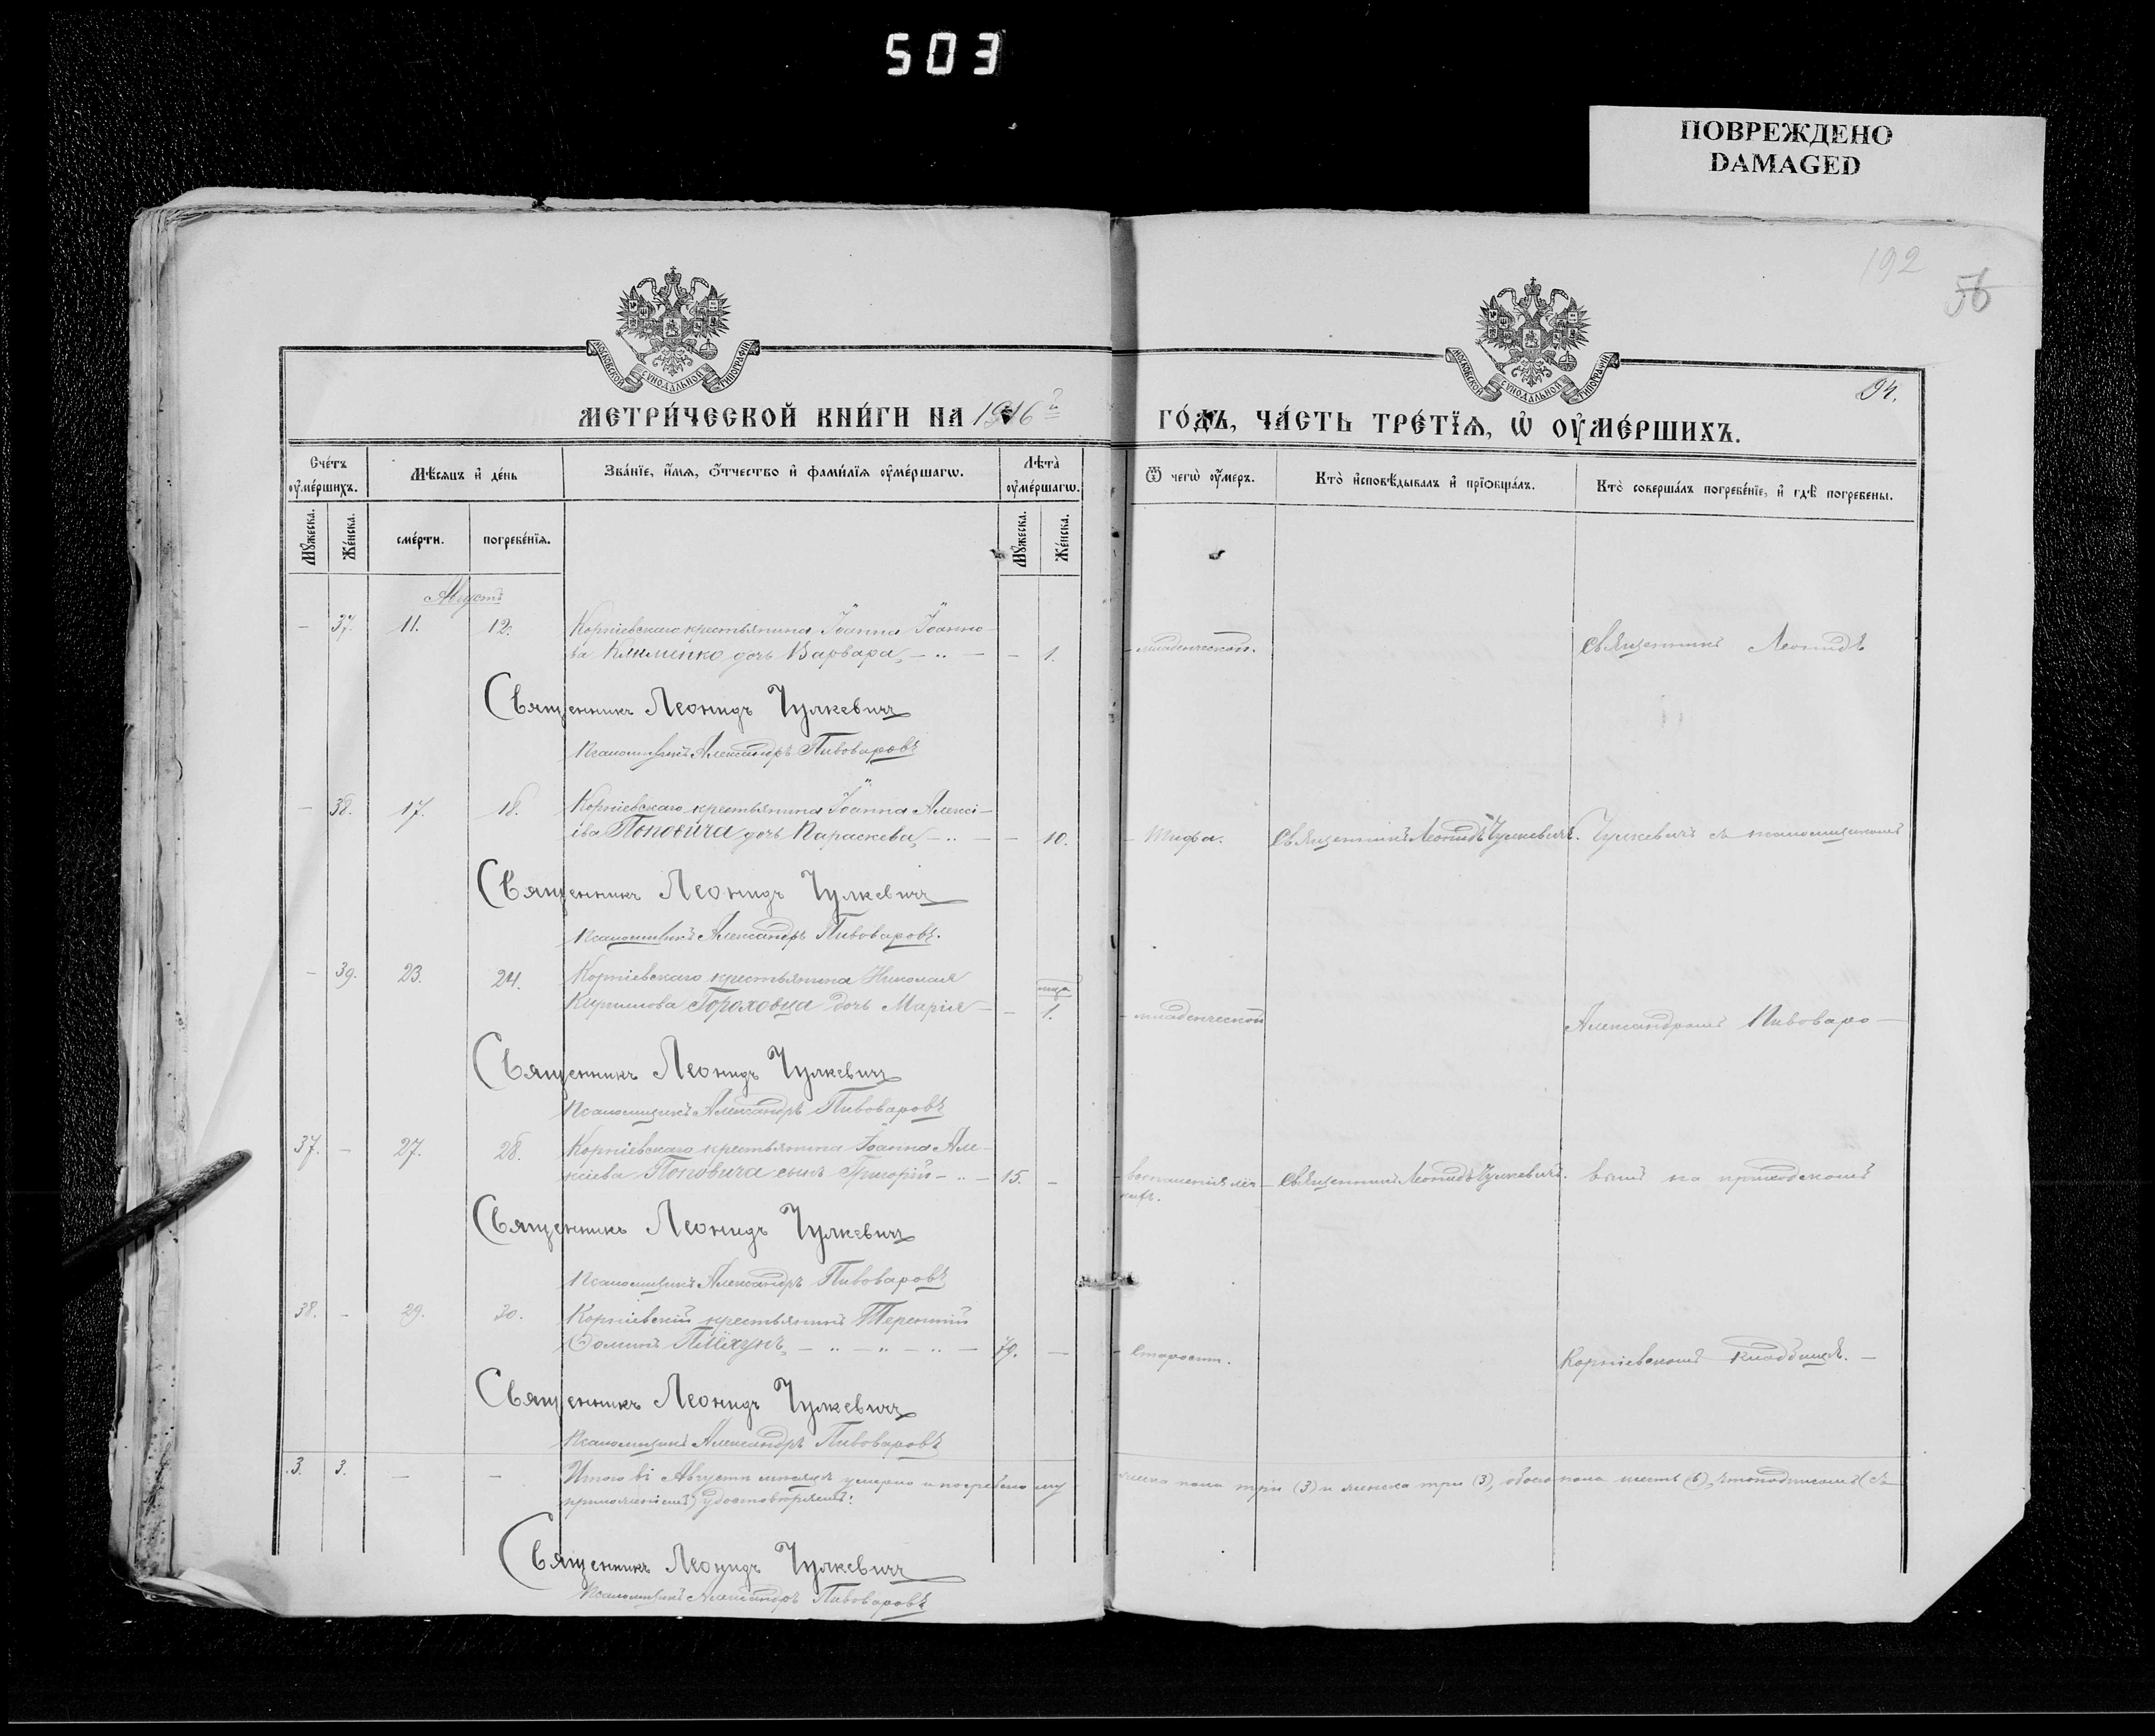 503
ПОВРЕЖДЕНО
DAMAGED
192
56
94.
МОСКОВСКОЙ СУНОДАЛЬНОЙ ТИПОГРАФІИ
МОСКОВСКОЙ СУНОДАЛЬНОЙ ТИПОГРАФІИ
МЕТРИ́ЧЕСКОЙ КНИ́ГИ НА 1916й
ГО́ДЪ, ЧА́СТЬ ТРЕ́ТЇѦ, Ѡ҆ ОУ҆МЕ́РШИХЪ.
Сче́тъ оу҆ме́ршихъ.
Мѣ́сяцъ и҆ де́нь
Зва́нїе, и҆́мѧ, ѻ҆́тчество и҆ фами́лїѧ оу҆ме́ршагѡ.
Лѣта̀ оу҆ме́ршагѡ.
Ѿ чегѡ̀ оу҆́меръ.
Кто̀ и҆сповѣ́дывалъ и҆ прїѡбща́лъ.
Кто̀ соверша́лъ погребе́нїе, и҆ гдѣ̀ погребены.
Мꙋ́жеска.
Же́нска.
сме́рти.
погребе́нїѧ.
Мꙋ́жеска.
Же́нска.
Августъ
— 37. 11. 12. Корніевскаго крестьянина Іоанна Іоанно-
ва Клименко дочь Варвара, — „ — — 1. — младенческой. Священникъ Леонидъ
Священникъ Леонидъ Чулкевичъ
Псаломщикъ Александръ Пивоваровъ
— 38. 17. 18. Корніевскаго крестьянина Іоанна Алексі-
ева Поповича дочь Параскева, — „ — — 10. — Тифа. Священникъ Леонидъ Чулкевичъ. Чулкевичъ съ псаломщикомъ
Священникъ Леонидъ Чулкевичъ
Псаломщикъ Александръ Пивоваровъ.
— 39. 23. 24. Корніевскаго крестьянина Николая
Кириллова Гороховца дочь Марія — — 1. — младенческой Александромъ Пивоваро-
Священникъ Леонидъ Чулкевичъ
Псаломщикъ Александръ Пивоваровъ
37. — 27. 28. Корніевскаго крестьянина Іоанна Але-
ксіева Поповича сынъ Григорій — „ — 15. — воспаленія лег- Священникъ Леонидъ Чулкевичъ. вымъ на приходскомъ
кихъ.
Священникъ Леонидъ Чулкевичъ
Псаломщикъ Александръ Пивоваровъ
38. — 29. 30. Корніевскій крестьянинъ Терентій
Ѳоминъ — „ — „ — „ — 79. — — Старости. Корніевскомъ кладбищѣ. —
Священникъ Леонидъ Чулкевичъ
Псаломщикъ Александръ Пивоваровъ
3. 3. — — Итого въ Августѣ мѣсяцѣ умерло и погребено му
жеска пола три (3) и женска три (3), обоего пола шесть (6), что подписомъ (съ
приложеніемъ) удостовѣряемъ:
Священникъ Леонидъ Чулкевичъ
Псаломщикъ Александръ Пивоваровъ